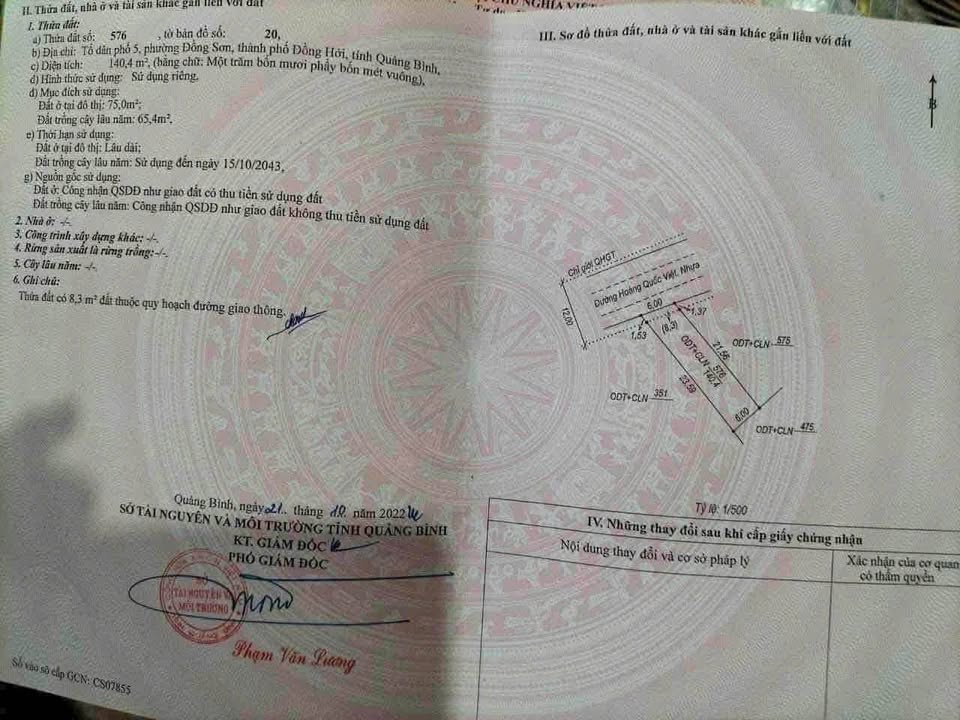 II. Thửa đất, nhà ở và tài sản khác gắn liền với đất
1. Thửa đất:
a) Thửa đất số: 576 , tờ bản đồ số: 20,
b) Địa chỉ: Tổ dân phố 5, phường Đồng Sơn, thành phố Đồng Hới, tỉnh Quảng Bình,
c) Diện tích 140,4 m², (bằng chữ: Một trăm bốn mươi phẩy bốn mét vuông),
d) Hình thức sử dụng: Sử dụng riêng,
đ) Mục đích sử dụng:
Đất ở tại đô thị: 75,0m²;
Đất trồng cây lâu năm: 65,4m²,
e) Thời hạn sử dụng:
Đất ở tại đô thị: Lâu dài;
Đất trồng cây lâu năm: Sử dụng đến ngày 15/10/2043,
g) Nguồn gốc sử dụng:
Đất ở: Công nhận QSDĐ như giao đất có thu tiền sử dụng đất
Đất trồng cây lâu năm: Công nhận QSDĐ như giao đất không thu tiền sử dụng đất
2. Nhà ở: -/-.
3. Công trình xây dựng khác: -/-.
4. Rừng sản xuất là rừng trồng:-/-.
5. Cây lâu năm: -/-.
6. Ghi chú:
Thửa đất có 8,3 m² đất thuộc quy hoạch đường giao thông.
Quảng Bình, ngày 21 tháng 10 năm 2022
SỞ TÀI NGUYÊN VÀ MÔI TRƯỜNG TỈNH QUẢNG BÌNH
KT. GIÁM ĐỐC
PHÓ GIÁM ĐỐC
SỞ
TÀI NGUYÊN VÀ
MÔI TRƯỜNG
Phạm Văn Lương
Số vào sổ cấp GCN: CS07855
III. Sơ đồ thửa đất, nhà ở và tài sản khác gắn liền với đất
B
Chỉ giới QHGT
Đường Hoàng Quốc Việt, Nhựa
12,00
6,00
1,37
1,53
(8,3)
ODT+CLN 576
140,4
21,56
23,59
ODT+CLN 575
ODT+CLN 351
6,00
ODT+CLN 475
Tỷ lệ: 1/500
IV. Những thay đổi sau khi cấp giấy chứng nhận
Nội dung thay đổi và cơ sở pháp lý
Xác nhận của cơ quan
có thẩm quyền